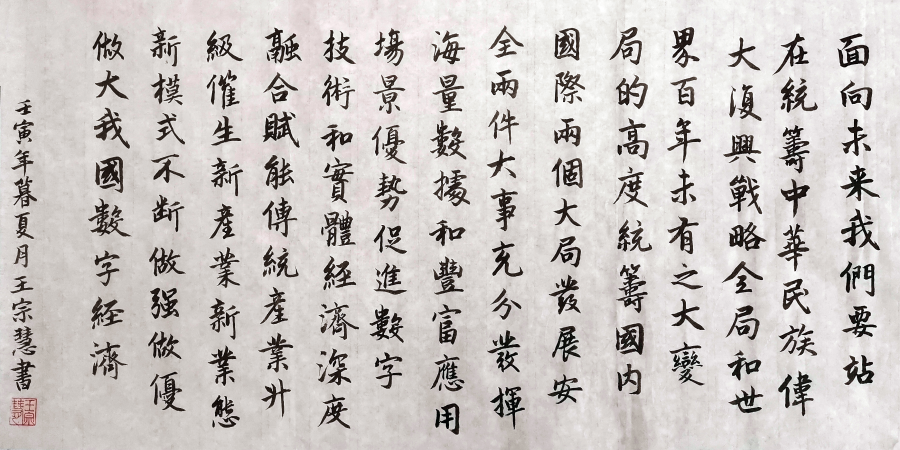 面向未来我們要站
在統籌中華民族偉
大復興戰略全局和世
界百年未有之大變
局的高度統籌國内
國際兩個大局發展安
全兩件大事充分發揮
海量數據和豐富應用
場景優勢促進數字
技術和實體經濟深度
融合賦能傳統產業升
級催生新產業新業態
新模式不断做强做優
做大我國數字经濟
壬寅年暮夏月王宗慧書